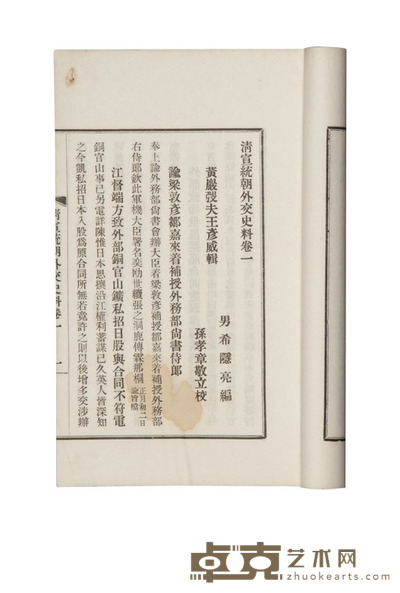 清宣統朝外交史料卷一
黃巖弢夫王彥威輯
男希隱亮編
孫孝章敬立校
諭梁敦彥鄒嘉來着補授外務部尚書侍郎
奉上諭外務部尚書會辦大臣着梁敦彥補授鄒嘉來着補授外務部
右侍郎欽此軍機大臣署名奕劻世續張之洞鹿傳霖那桐
正月初二日
諭旨檔
江督端方致外部銅官山鑛私招日股與合同不符電
銅官山事已另電詳陳惟日本思攬沿江權利蓄謀已久英人皆深知
之今凱私招日本入股爲原合同所無若竟許之則以後增多交涉辦
清宣統朝外交史料卷一
一
卓克艺术网
zhuokearts.com